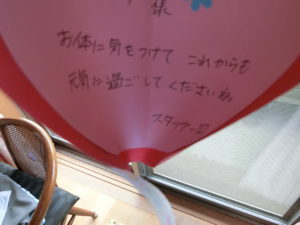 様
お体に気をつけて これからも
元気に過ごしてくださいね
スタッフ一同